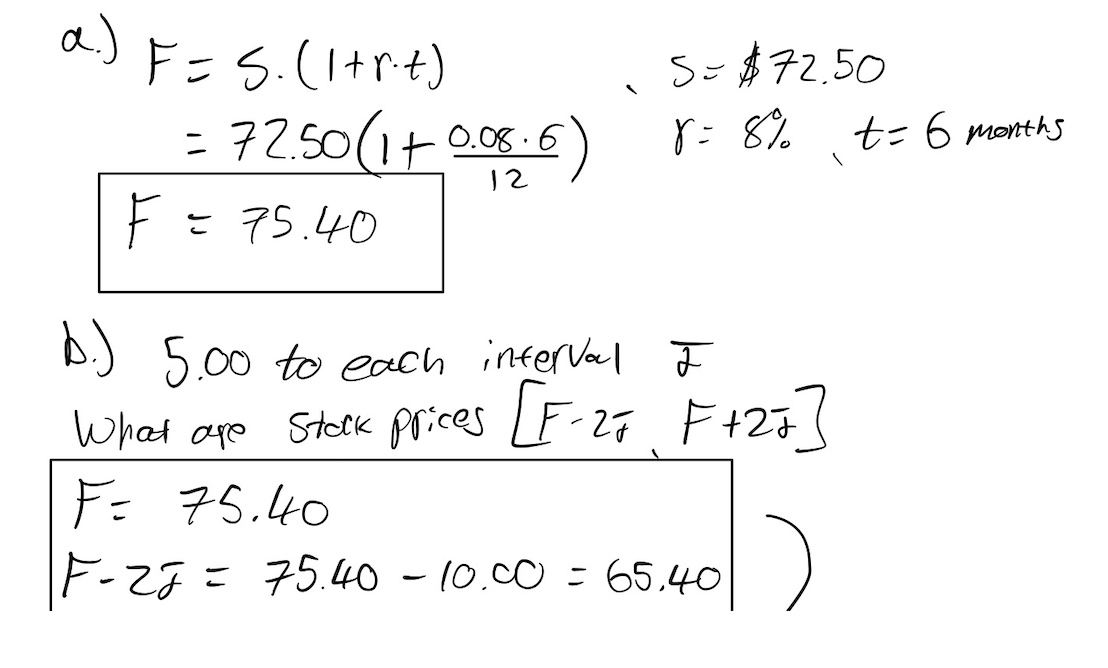 a.) F = S.(1+r.t) , S = $72.50
= 72.50(1 + 0.08.6/12) r = 8% , t = 6 months
F = 75.40
b.) 5.00 to each interval I
What are Stock prices [F-2I, F+2I]
F = 75.40
F-2I = 75.40 - 10.00 = 65.40 )